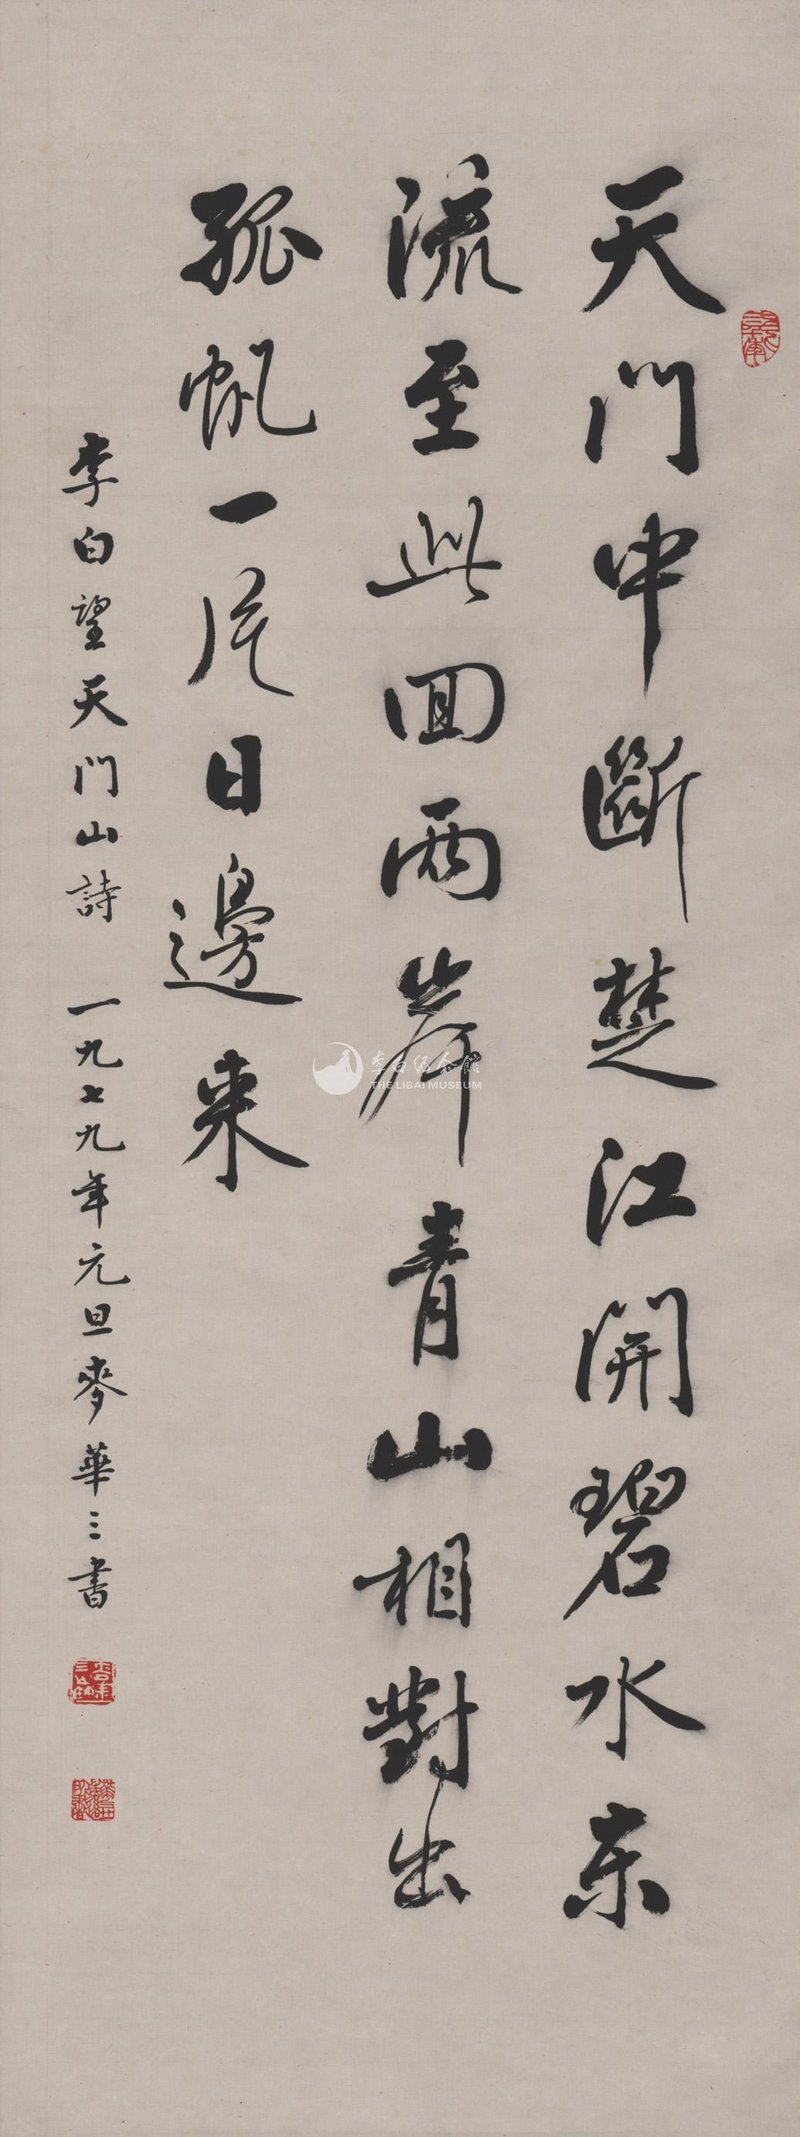 天門中斷楚江開碧水东
流至此回兩岸青山相對出
孤帆一片日邊来
李白望天門山詩 一九七九年元旦麥華三書
李白纪念館
THE LIBAI MUSEUM